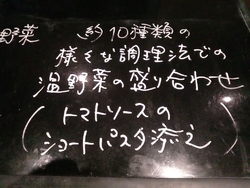 野菜 約10種類の
様々な調理法での
温野菜の盛り合わせ
(トマトソースの
ショートパスタ添え)